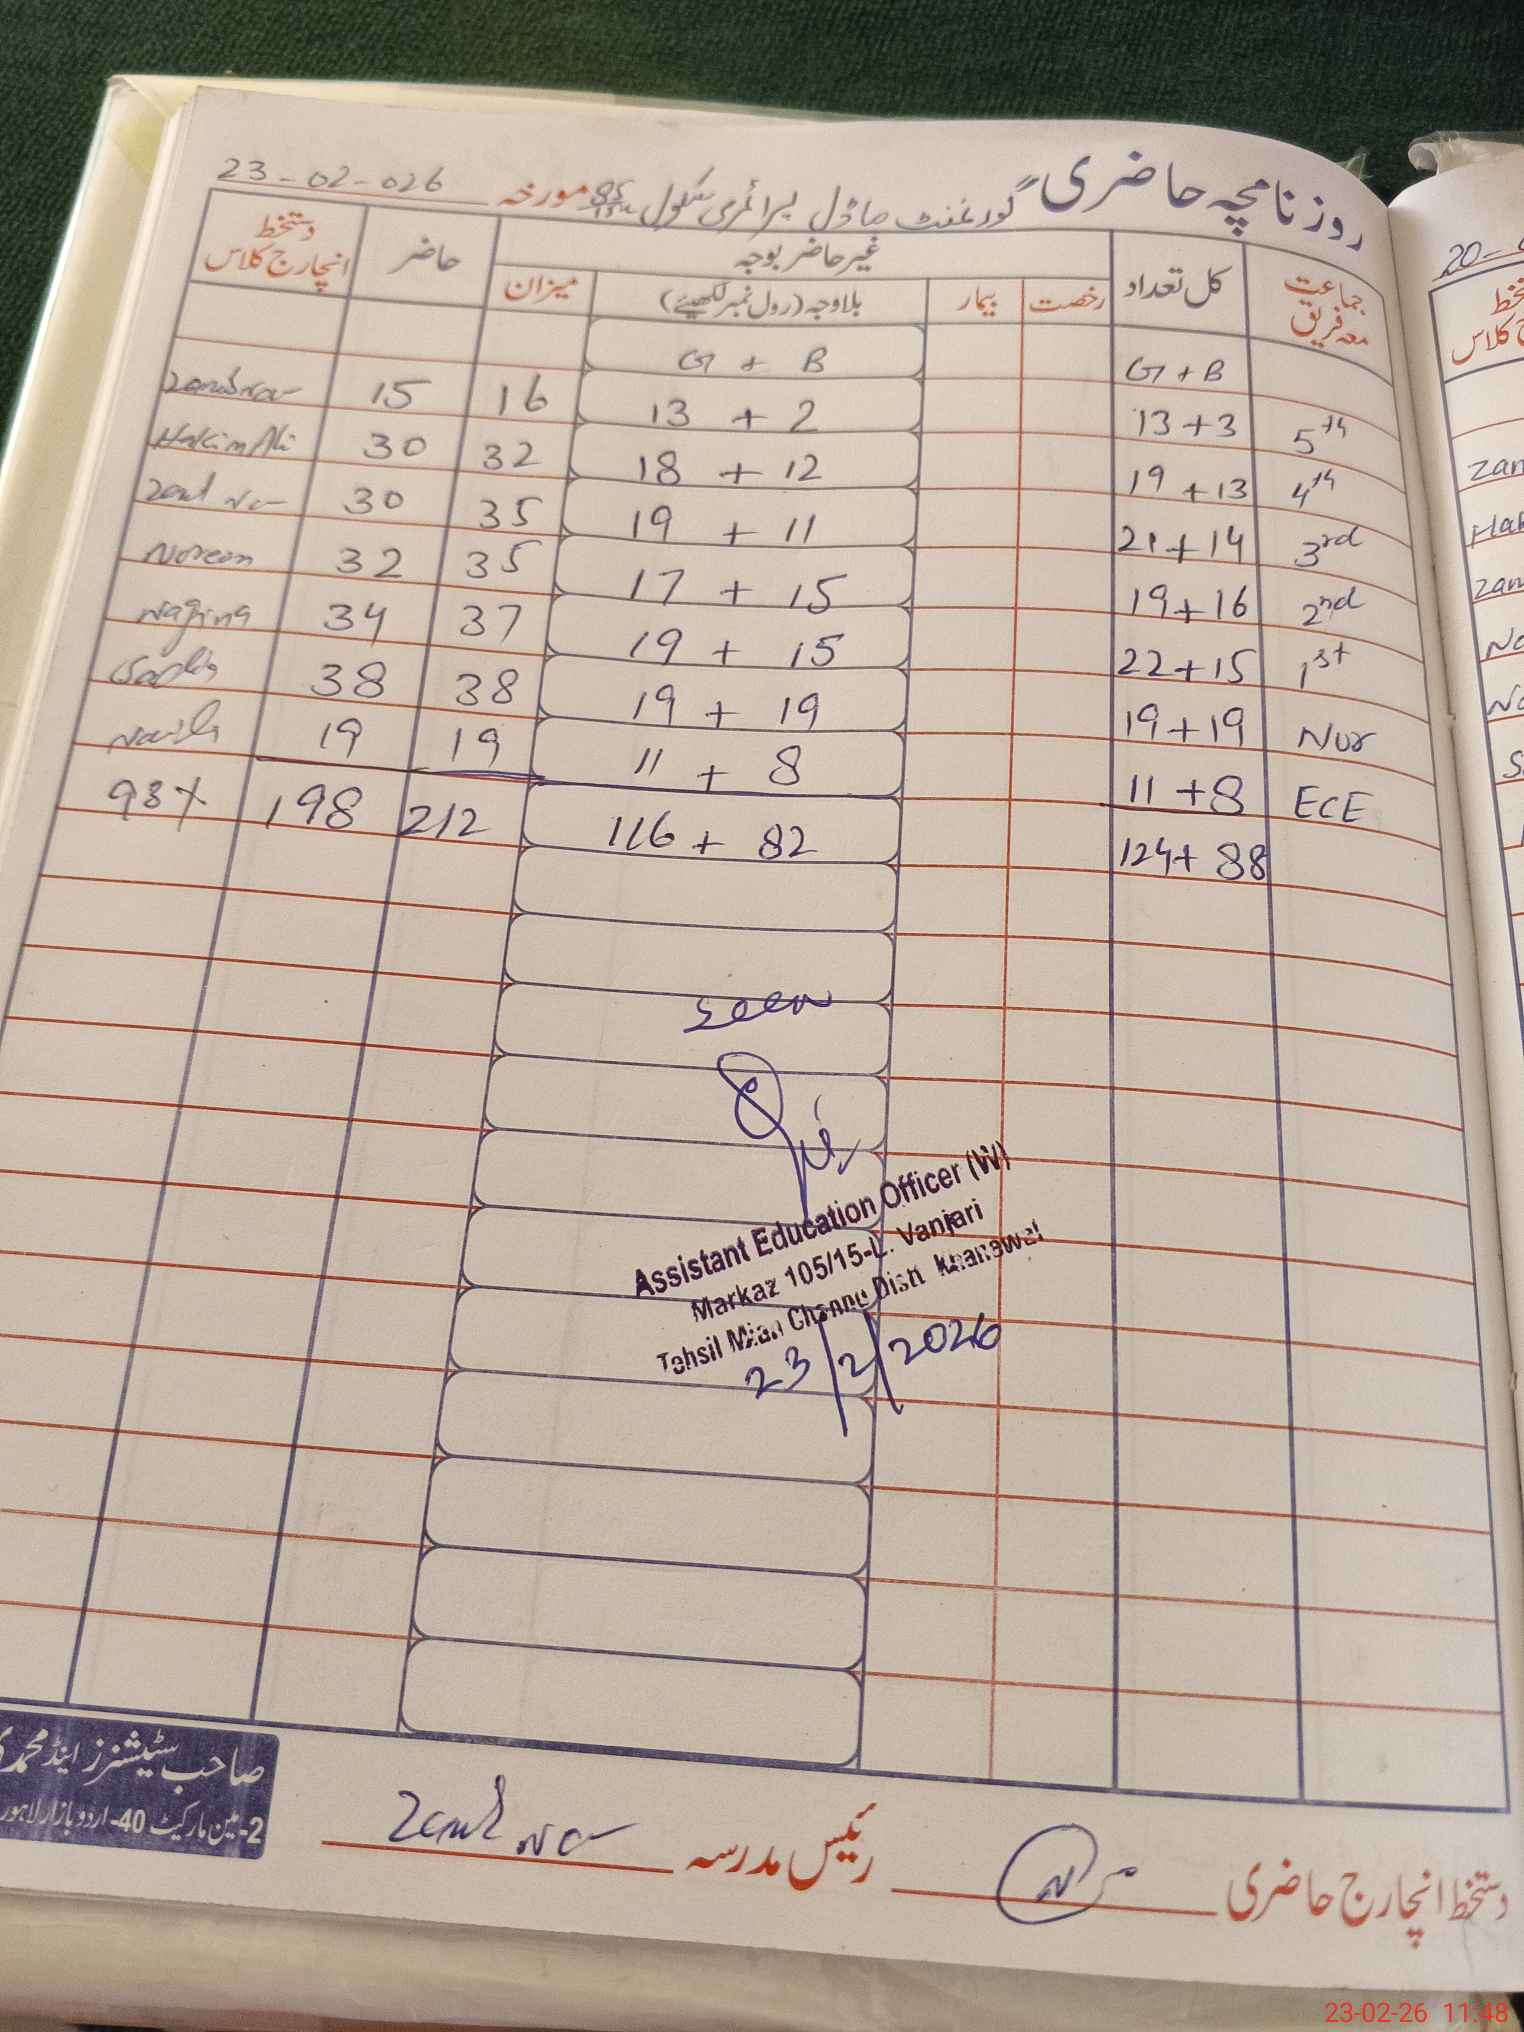 روزنامچہ حاضری گورنمنٹ ماڈل پرائمری سکول 85/15L مورخہ 23-02-026
جماعت معہ فریق کل تعداد غیر حاضر بوجہ حاضر دستخط انچارج کلاس
رخصت بیمار بلاوجہ (رول نمبر لکھیئے) میزان
G + B G + B
5th 13+3 13 + 2 16 15
4th 19+13 18 + 12 32 30 Hakim Ali
3rd 21+14 19 + 11 35 30
2nd 19+16 17 + 15 35 32 Noreen
1st 22+15 19 + 15 37 34 Nagina
Nur 19+19 19 + 19 38 38
ECE 11+8 11 + 8 19 19
124+88 116 + 82 212 198 93%
seen
Assistant Education Officer (W)
Markaz 105/15-L. Vanjari
Tehsil Mian Channu Distt Khanewal
23/2/2026
صاحب سٹیشنرز اینڈ محمدی
2-مین مارکیٹ 40-اردو بازار لاہور
دستخط انچارج حاضری رئیس مدرسہ
20-
دستخط
کلاس
Zan
Hak
Zan
No
Na
S
23-02-26 11:48